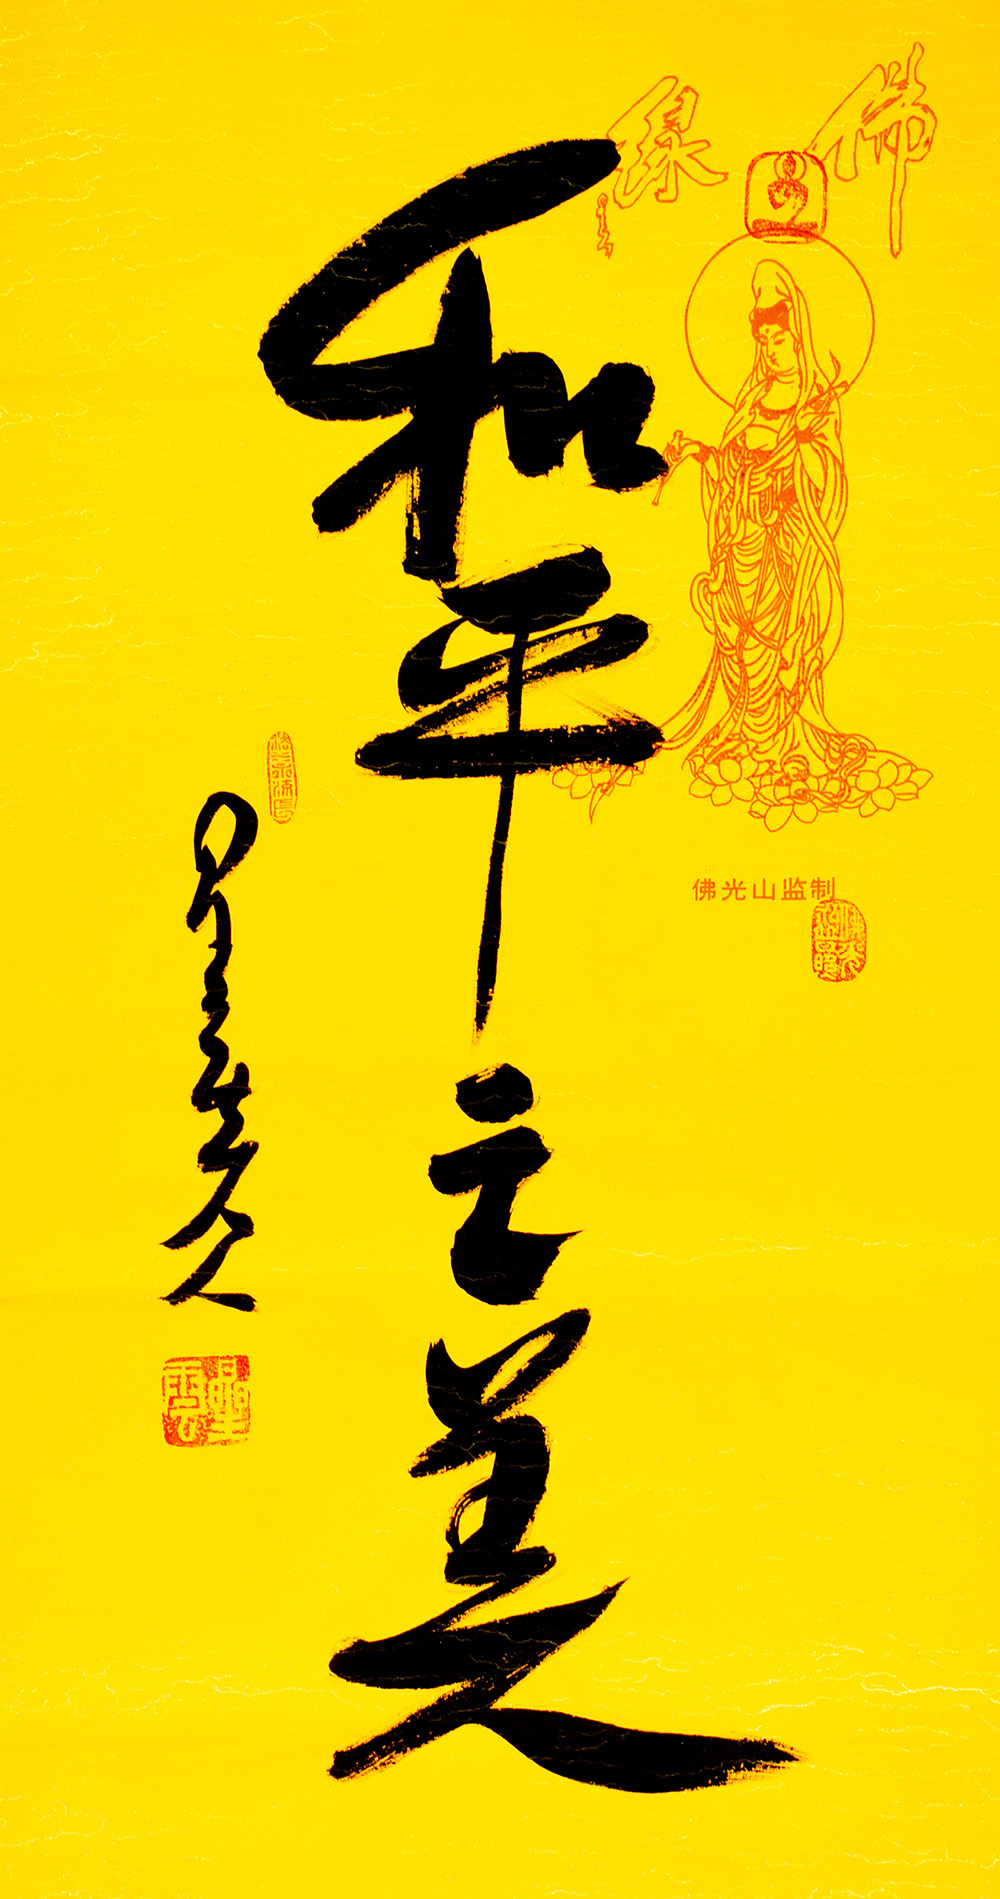 佛緣
佛光山监制
和平之美
星雲